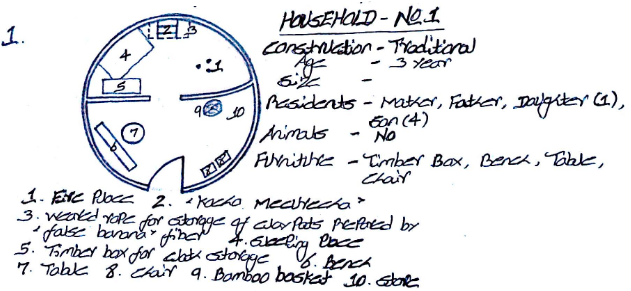 1.
HOUSEHOLD - NO.1
Construction - Traditional
Age - 3 year
Size -
Residents - Mother, Father, Daughter (1),
Son (4)
Animals - NO
Furniture - Timber Box, Bench, Table,
Chair
2
3
4
1
5
9
10
7
6
1. Fire Place 2.
3. rope for storage of clay Pots Prepared by
"false banana" fiber 4. Sleeping Place
5. Timber box for cloth storage 6. Bench
7. Table 8. Chair 9. Bamboo basket 10. Store